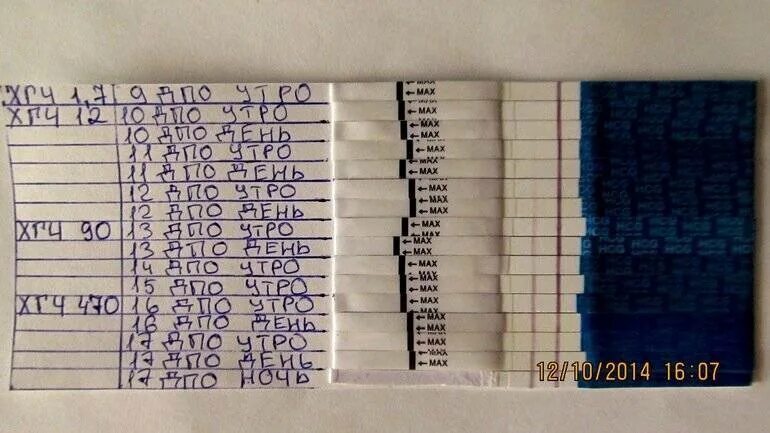 ХГЧ 1,7 9 ДПО УТРО
ХГЧ 12 10 ДПО УТРО
10 ДПО ДЕНЬ
11 ДПО УТРО
11 ДПО ДЕНЬ
12 ДПО УТРО
12 ДПО ДЕНЬ
ХГЧ 90 13 ДПО УТРО
13 ДПО ДЕНЬ
14 ДПО УТРО
15 ДПО УТРО
ХГЧ 470 16 ДПО УТРО
16 ДПО ДЕНЬ
17 ДПО УТРО
17 ДПО ДЕНЬ
17 ДПО НОЧЬ
←MAX
←MAX
←MAX
←MAX
←MAX
←MAX
←MAX
←MAX
←MAX
←MAX
←MAX
←MAX
←MAX
←MAX
←MAX
12/10/2014 16:07